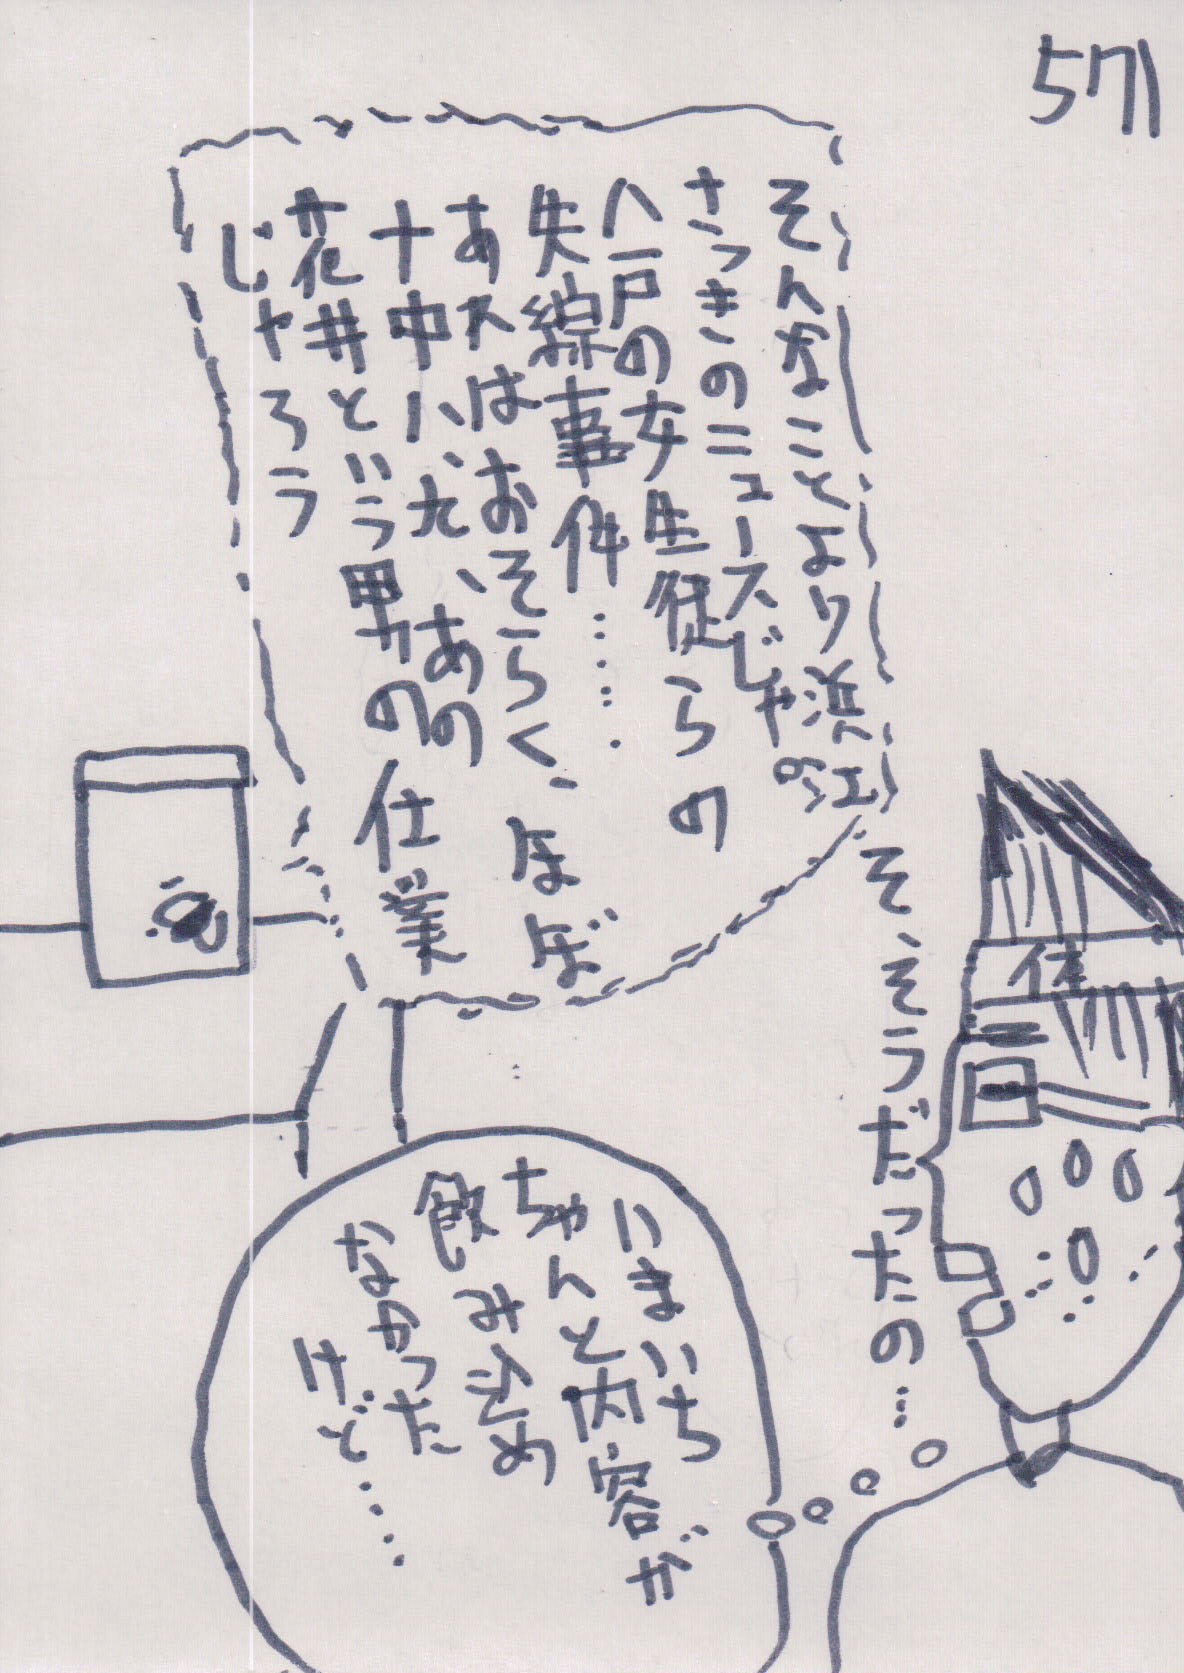 571
そんなことより浜江
さっきのニュースじゃの
八戸の女生徒らの
失綜事件……
あえはおそらく、ほぼ
十中八九、あの
花井という男の仕業
じゃろう
そ、そうだったの…
いまいち
ちゃんと内容が
飲み込め
なかった
けど……